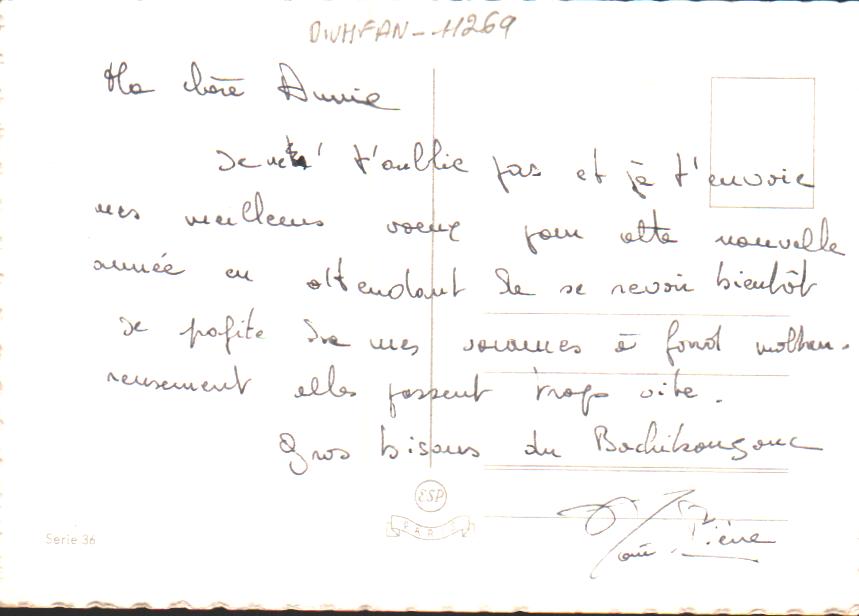 DWHFAN-11269
Ma chère Annie
Je ne t'oublie pas et je t'envoie
mes meilleurs voeux pour cette nouvelle
année en attendant de se revoir bientôt
Je profite de mes vacances à fond malheu-
reusement elles passent trop vite.
Gros bisous du
ESP
PARIS
Serie 36
Pière